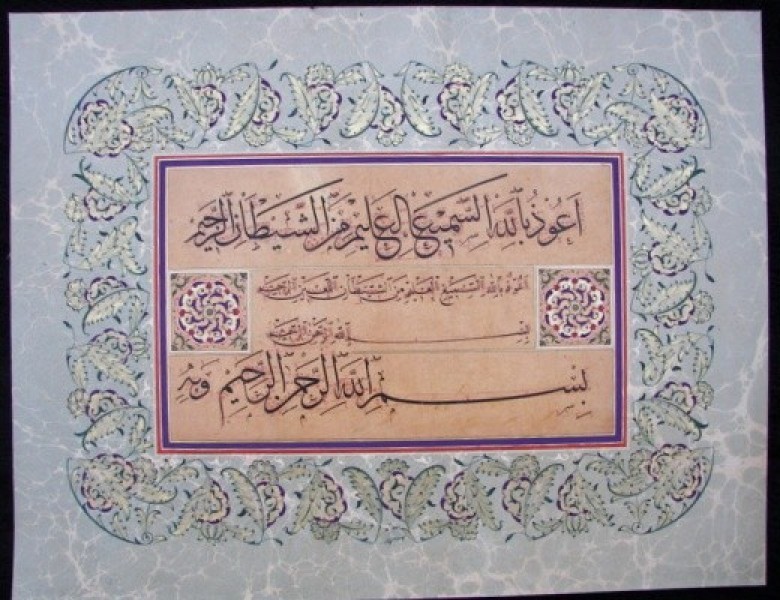 أَعُوذُ بِاللّٰهِ السَّمِيعِ الْعَلِيمِ مِنَ الشَّيْطَانِ الرَّجِيمِ
اعوذ بالله السميع العليم من الشيطان اللعين الرجيم
بسم الله الرحمن الرحيم
بِسْمِ اللّٰهِ الرَّحْمٰنِ الرَّحِيمِ وَبِهِ